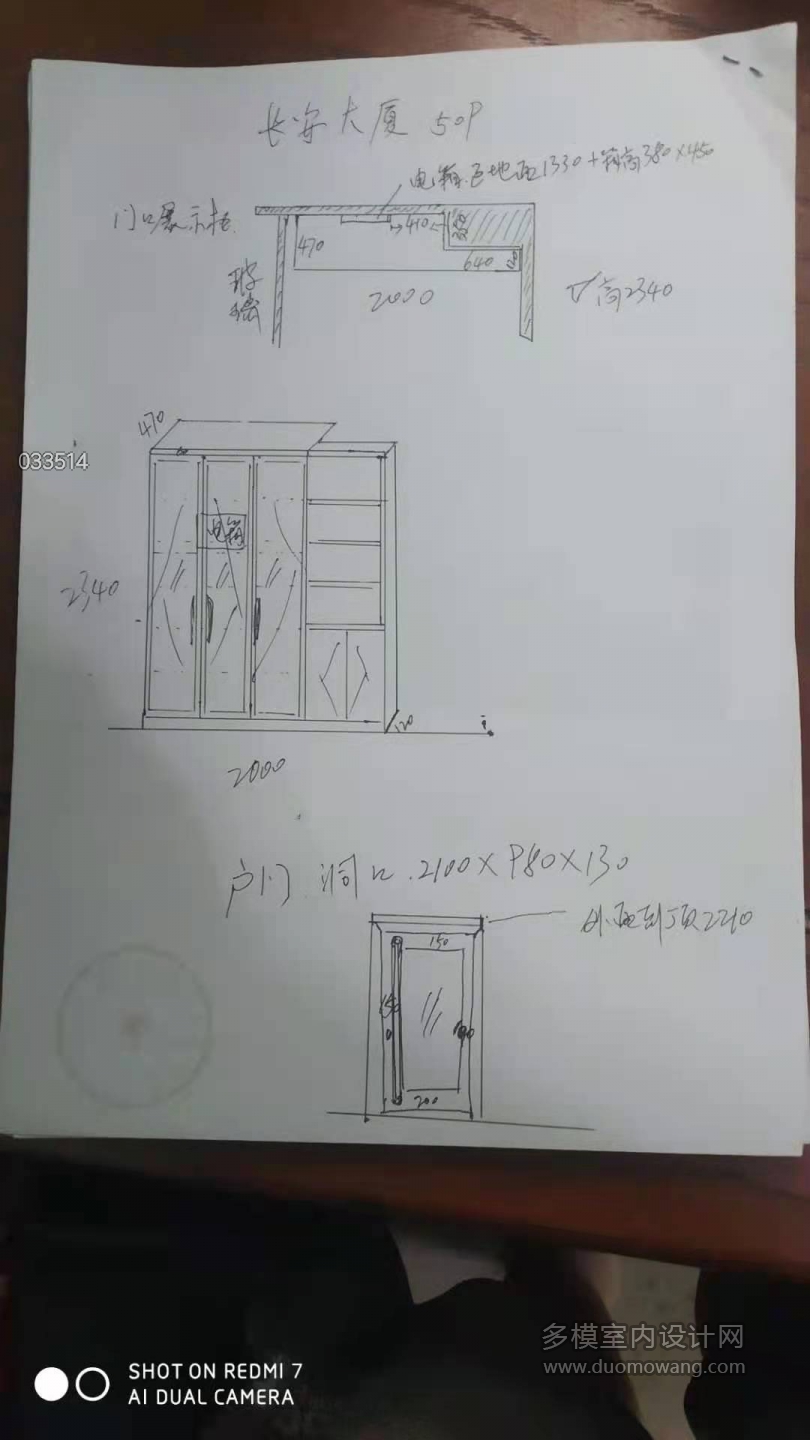 长安大厦 509
电箱.至地面1330+箱高380×450
门口展示柜
470
410
350
640
120
玻璃
2000
高2340
470
033514
电箱
2340
120
2000
户门 洞口.2100×980×130
外面到顶2210
150
150
100
200
多模室内设计网
www.duomowang.com
SHOT ON REDMI 7
AI DUAL CAMERA